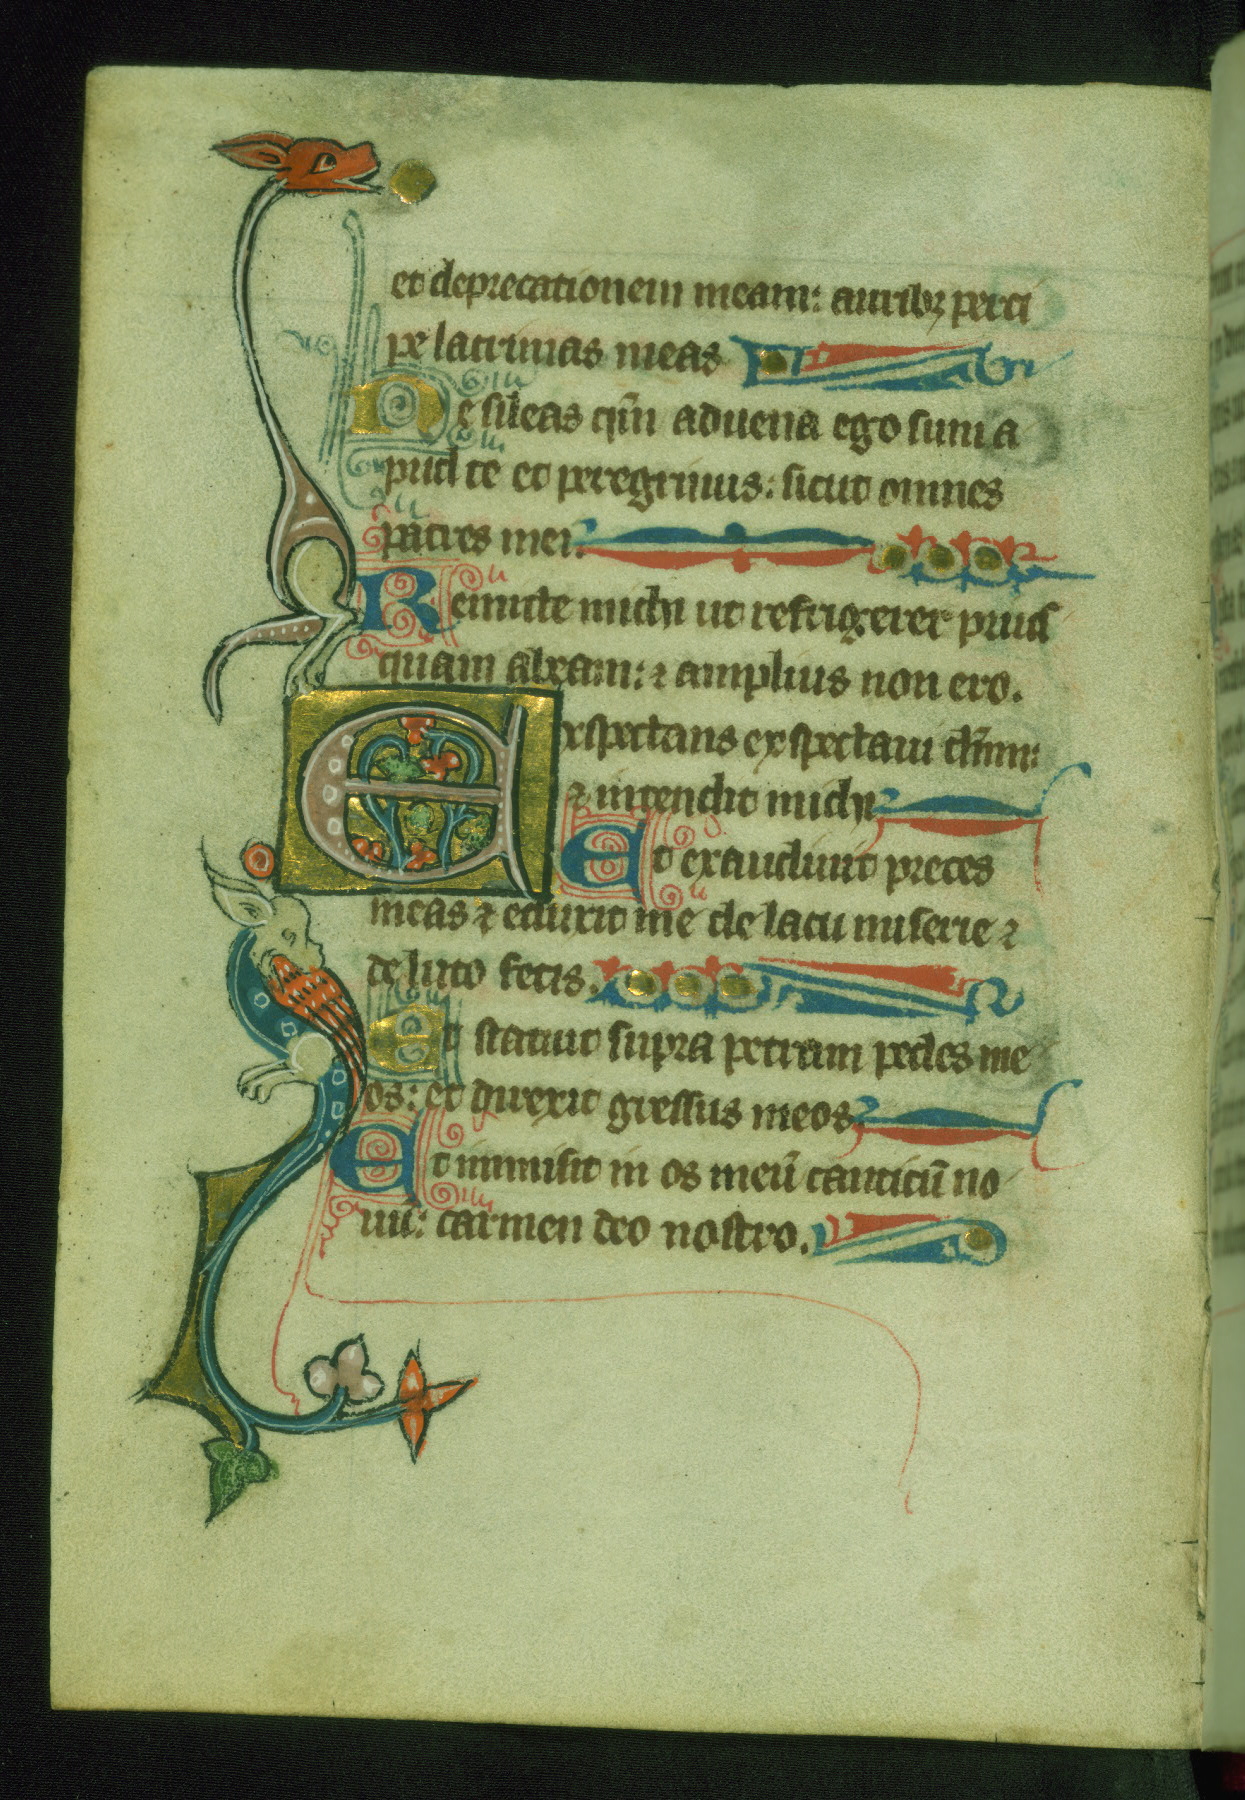 et deprecationem meam: auribꝫ perci
pe lacrimas meas
Ne sileas qm̄ aduena ego sum a
pud te et peregrinus: sicut omnes
patres mei.
Remitte michi ut refrigerer prius
quam abeam: ⁊ amplius non ero.
Exspectans exspectaui dn̄m:
⁊ intendit michi
Et exaudiuit preces
meas ⁊ eduxit me de lacu miserie ⁊
de luto fecis.
Et statuit supra petram pedes me
os: et direxit gressus meos
Et inmisit in os meū canticū no
uū: carmen deo nostro.